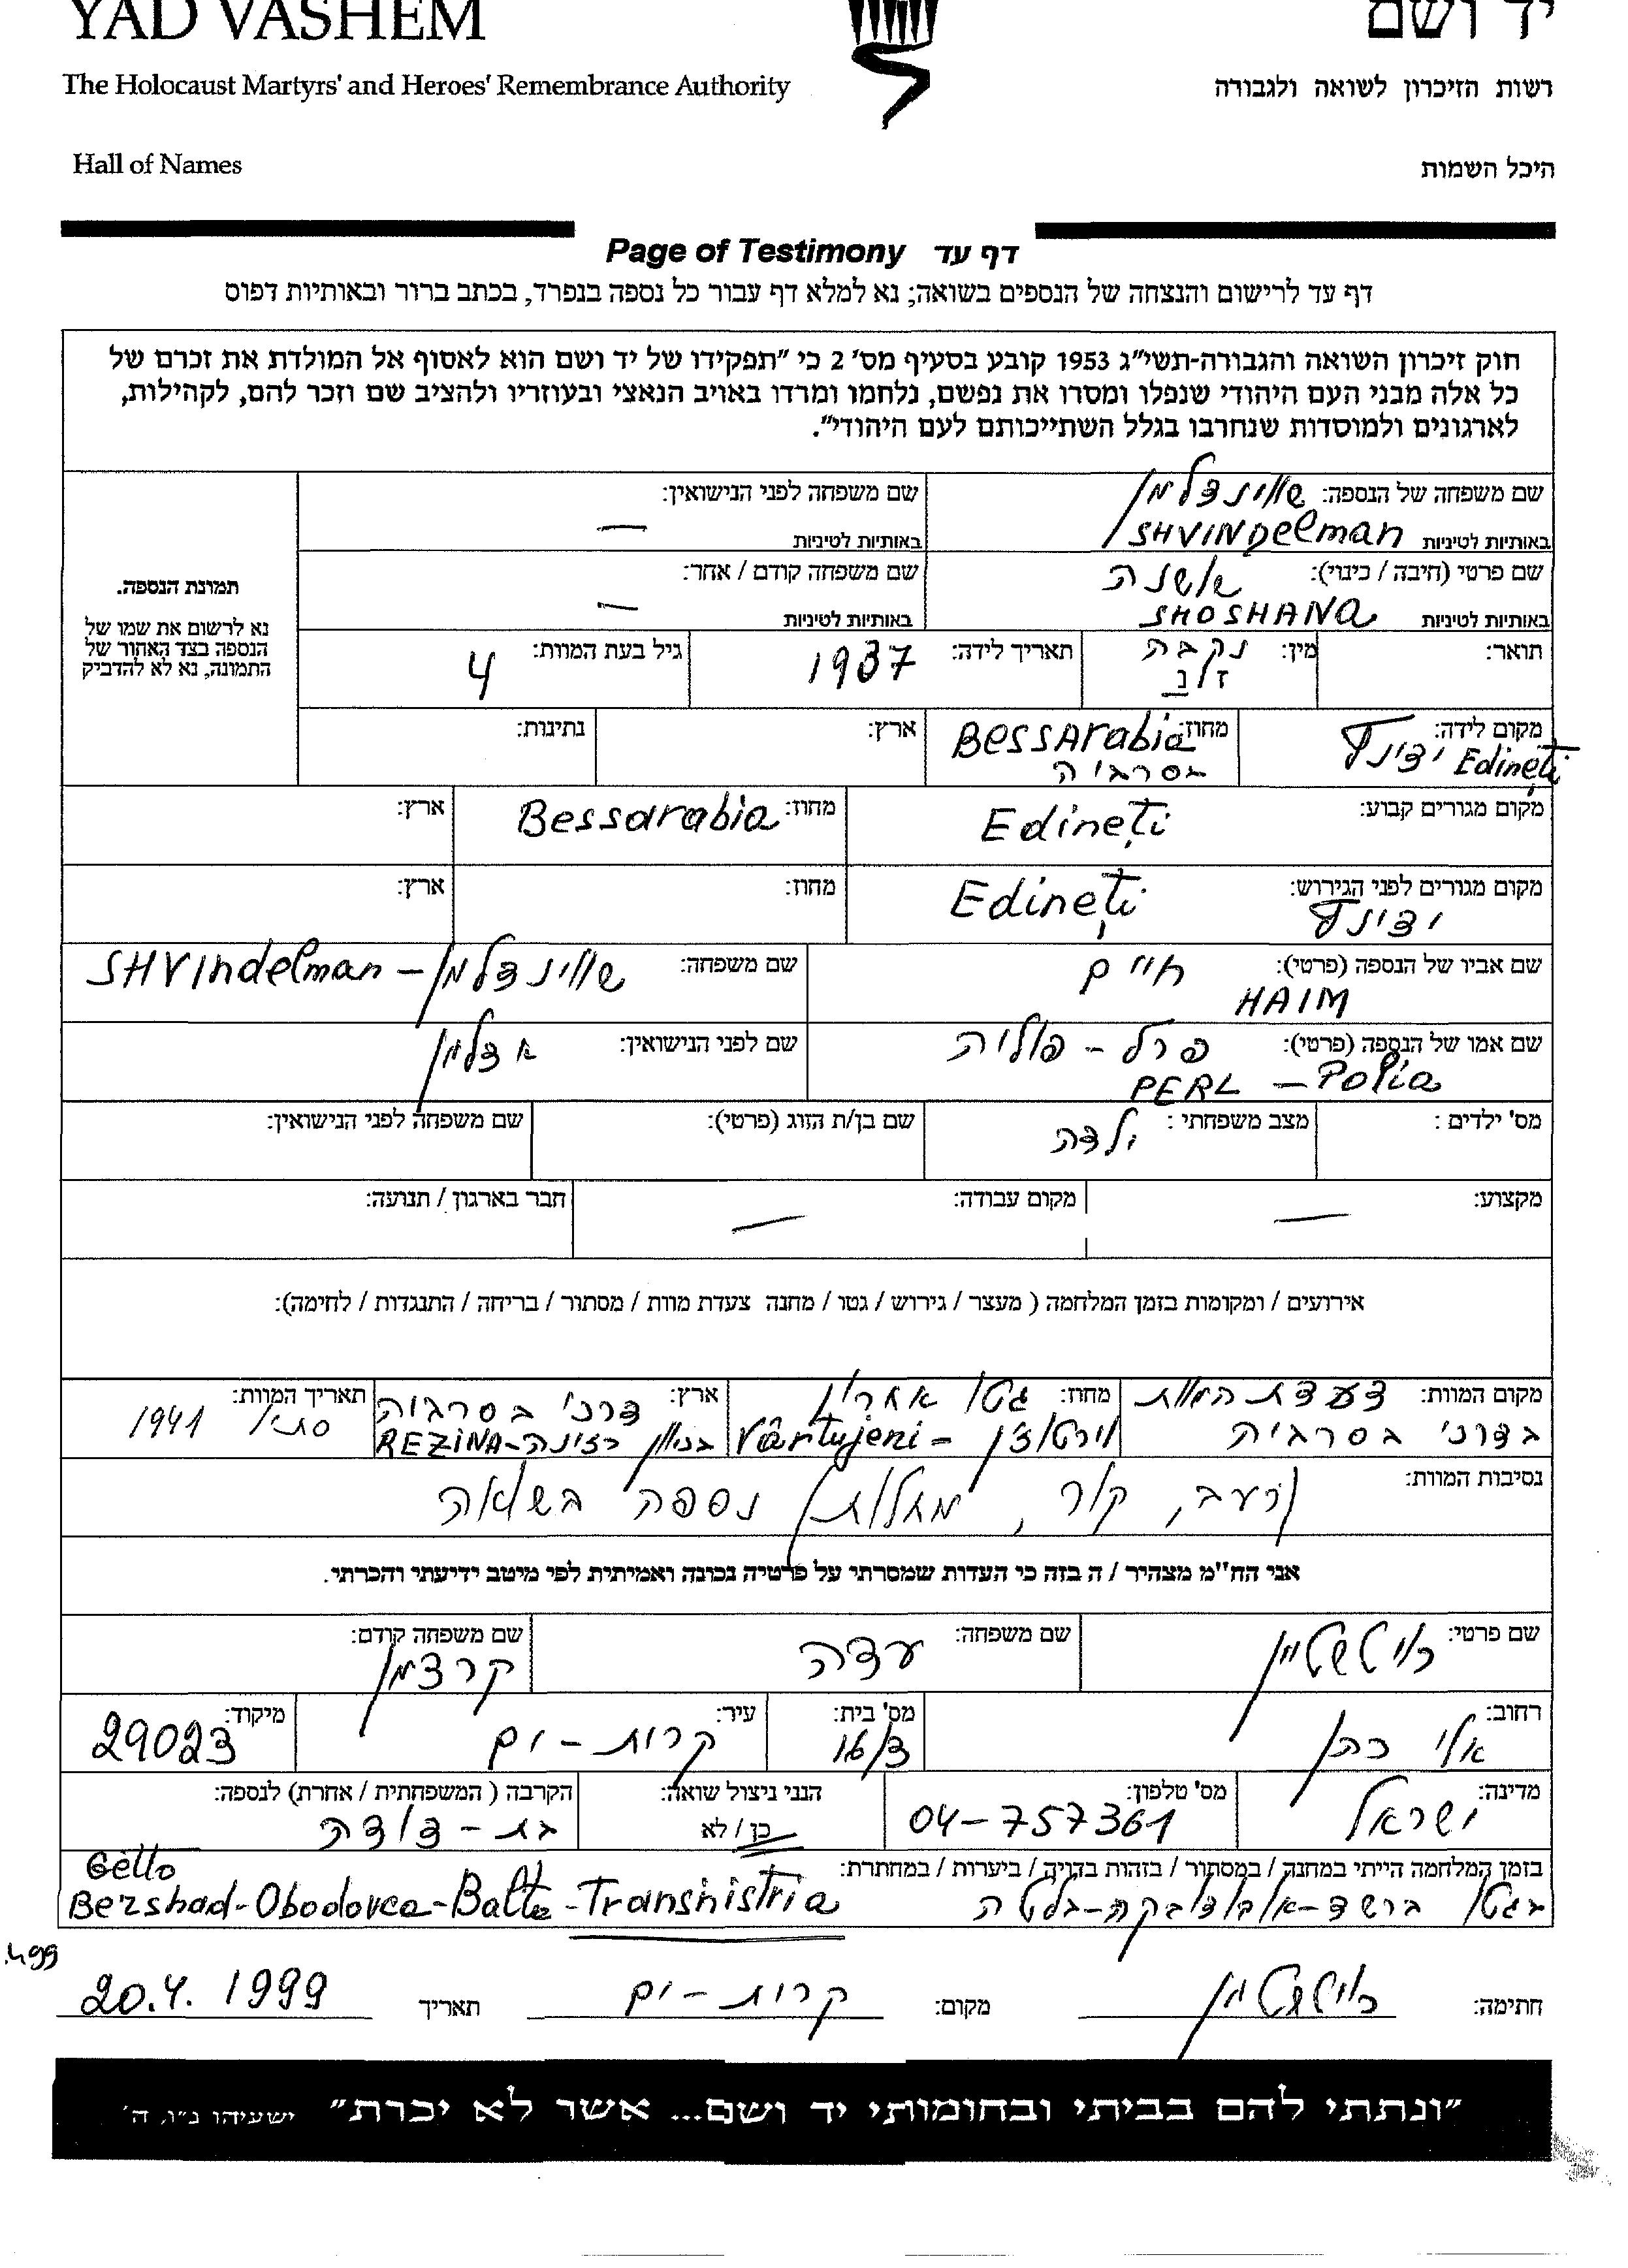 YAD VASHEM יד ושם
The Holocaust Martyrs' and Heroes' Remembrance Authority רשות הזיכרון לשואה ולגבורה
Hall of Names היכל השמות
Page of Testimony דף עד
דף עד לרישום והנצחה של הנספים בשואה; נא למלא דף עבור כל נספה בנפרד, בכתב ברור ובאותיות דפוס
חוק זיכרון השואה והגבורה-תשי"ג 1953 קובע בסעיף מס' 2 כי "תפקידו של יד ושם הוא לאסוף אל המולדת את זכרם של
כל אלה מבני העם היהודי שנפלו ומסרו את נפשם, נלחמו ומרדו באויב הנאצי ובעוזריו ולהציב שם וזכר להם, לקהילות,
לארגונים ולמוסדות שנחרבו בגלל השתייכותם לעם היהודי".
שם משפחה של הנספה: שווינדלמן
באותיות לטיניות SHVINDelman
שם משפחה לפני הנישואין: —
באותיות לטיניות
שם פרטי (חיבה / כינוי): שושנה
באותיות לטיניות SHOSHANA
שם משפחה קודם / אחר: —
באותיות לטיניות
תמונת הנספה.
נא לרשום את שמו של
הנספה בצד האחור של
התמונה, נא לא להדביק
תואר:
מין: נקבה
ז/נ
תאריך לידה: 1937
גיל בעת המוות: 4
מקום לידה: ידינץ Edineţi
מחוז: BessArabia
בסרביה
ארץ:
נתינות:
מקום מגורים קבוע: Edineţi
מחוז: Bessarabia
ארץ:
מקום מגורים לפני הגירוש: Edineţi
ידינץ
מחוז:
ארץ:
שם אביו של הנספה (פרטי): חיים
HAIM
שם משפחה: שווינדלמן – SHVIndelman
שם אמו של הנספה (פרטי): פרל - פוליה
PERL – Polia
שם לפני הנישואין: אדלמן
מס' ילדים :
מצב משפחתי : ילדה
שם בן/ת הזוג (פרטי):
שם משפחה לפני הנישואין:
מקצוע: —
מקום עבודה: —
חבר בארגון / תנועה:
אירועים / ומקומות בזמן המלחמה ( מעצר / גירוש / גטו / מחנה צעדת מוות / מסתור / בריחה / התנגדות / לחימה):
מקום המוות: צעדת המוות
בדרכי בסרביה
מחוז: גטו אחרון
וירטוז'ן - Vârtujeni
ארץ: דרכי בסרביה
בכיוון רזינה-REZINA
תאריך המוות: סתיו 1941
נסיבות המוות: רעב, קור, מחלות נספה בשואה
אני הח"מ מצהיר / ה בזה כי העדות שמסרתי על פרטיה נכונה ואמיתית לפי מיטב ידיעתי והכרתי.
שם פרטי: רויטשטיין
שם משפחה: עדה
שם משפחה קודם: קרצמן
רחוב: אלי כהן
מס' בית: 16/3
עיר: קרית-ים
מיקוד: 29023
מדינה: ישראל
מס' טלפון: 04-757361
הנני ניצול שואה:
כן / לא
הקרבה ( המשפחתית / אחרת) לנספה:
בת - דודה
בזמן המלחמה הייתי במחנה / במסתור / בזהות בדויה / ביערות / במחתרת:
בגטו ברשד-אובודובקה-בלטה
Getto
Bershad-Obodovca-Balta-Transnistria
חתימה: רויטשטיין מקום: קרית-ים תאריך 20.4.1999
"ונתתי להם בביתי ובחומותי יד ושם... אשר לא יכרת" ישעיהו נ"ו, ה'